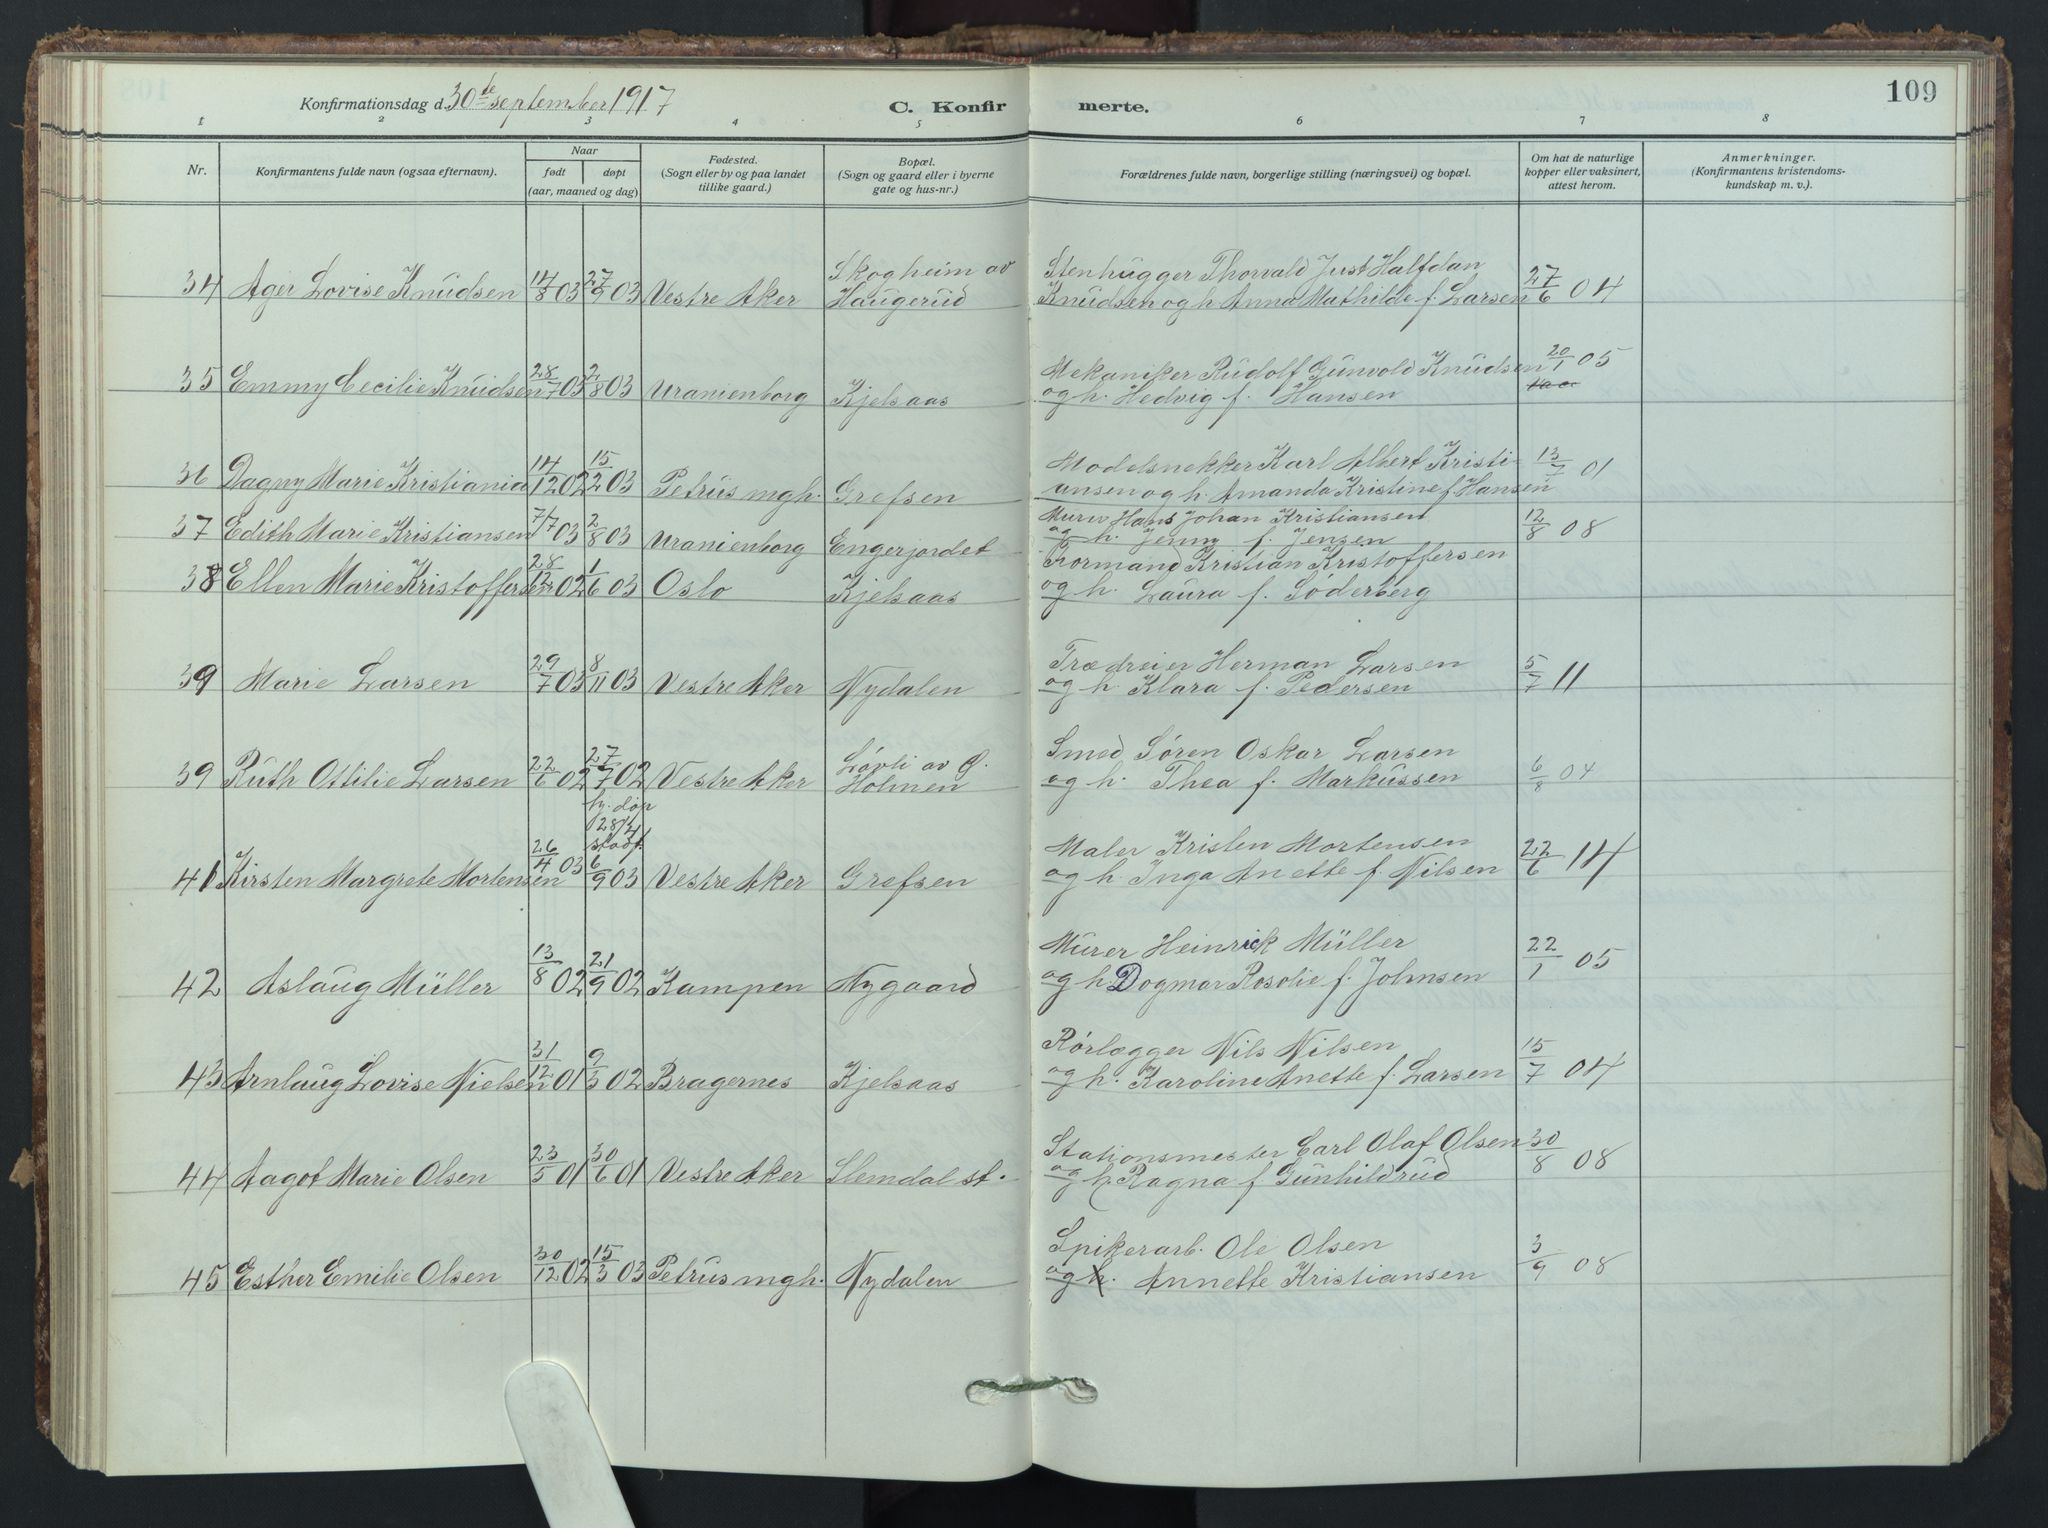 Konfirmationsdag d. 30de september 1917 C. Konfirmerte. 109
1 2 3 4 5 6 7 8
Nr. Konfirmantens fulde navn (ogsaa efternavn). Naar født døpt (aar, maaned og dag) Fødested. (Sogn eller by og paa landet tillike gaard.) Bopæl. (Sogn og gaard eller i byerne gate og hus-nr.) Forældrenes fulde navn, borgerlige stilling (næringsvei) og bopæl. Om hat de naturlige kopper eller vaksinert, attest herom. Anmerkninger. (Konfirmantens kristendomskundskap m. v.).
Skogheim av Stenhugger Thorvald Just Halfdan
34 Ager Lovise Knudsen 14/8 03 27/9 03 Vestre Aker Haugerud Knudsen og h. Anna Mathilde f. Larsen 27/6 04
Mekaniker Rudolf Gunvold Knudsen 20/1 05
35 Emmy Cecilie Knudsen 28/7 03 2/8 03 Uranienborg Kjelsaas og h. Hedvig f. Hansen
Modelsnekker Karl Albert Kristi-
36 Dagny Marie Kristiania 14/12 02 15/2 03 Petrus mgh. Grefsen ansen og h. Amanda Kristine f. Hansen 13/7 01
Murer Hans Johan Kristiansen
37 Edith Marie Kristiansen 7/7 03 2/8 03 Uranienborg Engerjordet og h. Jenny f. Jensen 12/8 08
Formand Kristian Kristoffersen
38 Ellen Marie Kristoffersen 28/12 02 1/6 03 Oslo Kjelsaas og h. Laura f. Söderberg
Trædreier Herman Larsen
39 Marie Larsen 29/7 03 8/11 03 Vestre Aker Nydalen og h. Klara f. Pedersen 5/7 11
Løvli av Ø. Smed Søren Oskar Larsen
39 Ruth Ottilie Larsen 22/6 02 27/7 02 Vestre Aker Holmen og h. Thea f. Markussen 6/8 04
hj. døp
28/4
stadf.
Maler Kristen Mortensen
41 Kirsten Margrete Mortensen 26/4 03 6/9 03 Vestre Aker Grefsen og h. Inga Anette f. Nilsen 22/6 14
Murer Heinrick Müller
42 Aslaug Müller 13/8 02 21/9 02 Kampen Nygaard og h. Dogmar Rosolie f. Johnsen 22/1 05
Rørlægger Nils Nilsen
43 Arnlaug Lovise Nielsen 31/12 01 9/3 02 Bragernes Kjelsaas og h. Karoline Anette f. Larsen 15/7 04
Stationsmester Carl Olaf Olsen
44 Aagot Marie Olsen 23/5 01 30/6 01 Vestre Aker Slemdal st. og h. Ragna f. Gunhildrud 30/8 08
Spikerarb. Ole Olsen
45 Esther Emilie Olsen 30/12 02 15/3 03 Petrus mgh. Nydalen og h. Annette Kristiansen 3/9 08